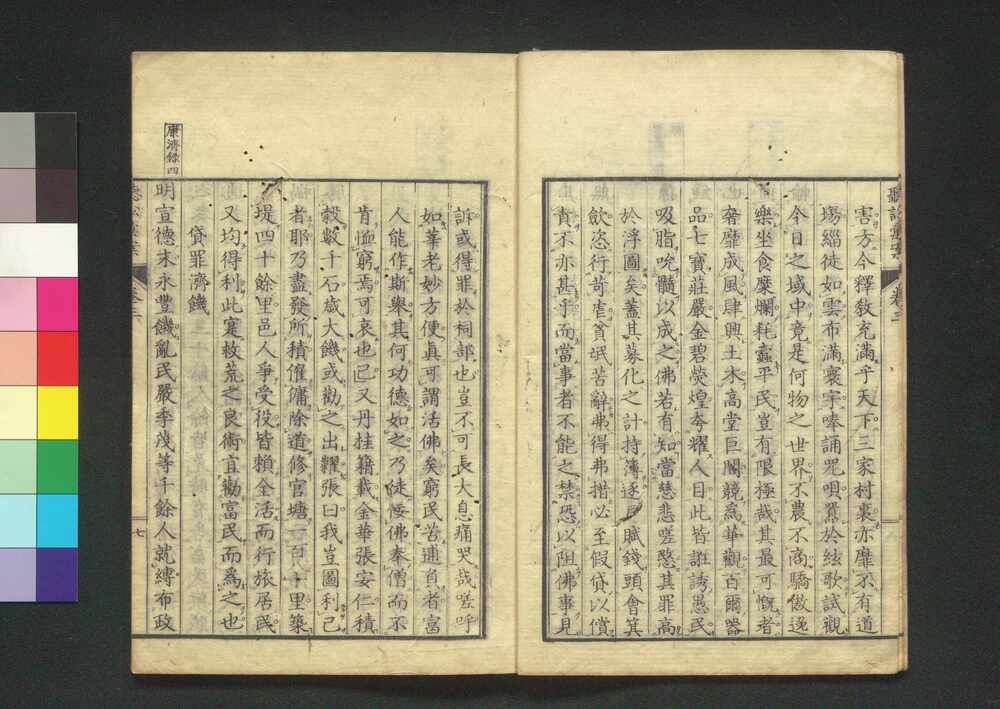 害方今釋教充滿乎天下三家村裏亦靡不有道
塲緇徒如雲布滿寰宇唪誦咒唄嚣於絃歌試觀
今日之域中竟是何物之世界不農不商驕傲逸
樂坐食糜爛耗蠹平民豈有限極哉其最可慨者
奢靡成風肆興土木高堂巨閣競為華觀百爾器
品七寶莊嚴金碧熒煌夸耀人目此皆誑誘愚民
吸脂吮髓以成之佛若有知當慈悲嗟愍其罪高
於浮圖矣蓋其募化之計持簿逐戶賦錢頭會箕
飲恣行苛虐貧氓苦辭弗得弗措必至假貸以償
責不亦甚乎而當事者不能之禁恐以阻佛事見
訴或得罪於祠部也豈不可長大息痛哭哉嗟呼
如華老妙方便真可謂活佛矣窮民苦逋負者富
人能作斯舉其何功德如之乃徒倿佛奉僧而不
肯恤窮焉可哀也已又丹桂籍載金華張安仁積
穀數千石歲大饑或勸之出糶張曰我豈圖利己
者耶乃盡發所積僱傭除道修官塘一百十里築
堤四十餘里邑人爭受役皆賴全活而行旅居民
又均得利此寔救荒之良術宜勸富民而為之也
貸罪濟饑
康濟錄四
明宣德末永豐饑亂民嚴季茂等千餘人就縛布政
七